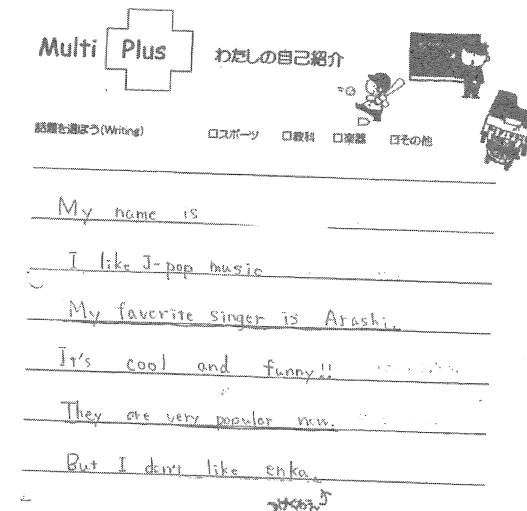 Multi Plus わたしの自己紹介
話題を選ぼう(Writing) □スポーツ □教科 □楽器 □その他
My name is
I like J-pop music
My favorite singer is Arashi.
It's cool and funny!!
They are very popular now.
But I don't like enka.